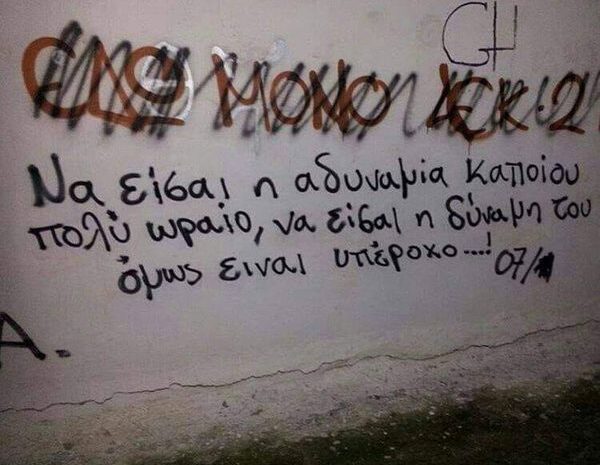 GH
ΕΔΩ ΜΟΝΟ ΑΕΚ-21
Να είσαι η αδυναμία κάποιου
πολύ ωραίο, να είσαι η δύναμη του
όμως ειναι υπέροχο...! 07/
A.